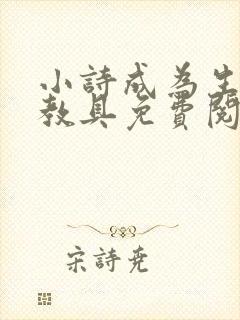 小詩成為生
教具免費閱
宋詩堯